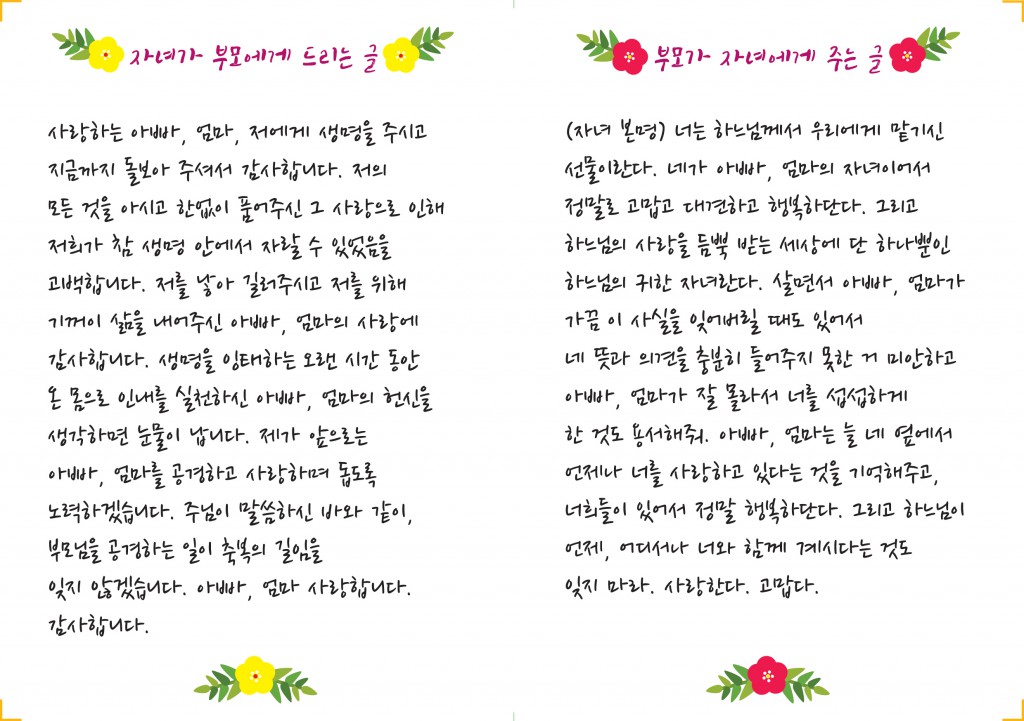 자녀가 부모에게 드리는 글
사랑하는 아빠, 엄마, 저에게 생명을 주시고
지금까지 돌보아 주셔서 감사합니다. 저의
모든 것을 아시고 한없이 품어주신 그 사랑으로 인해
저희가 참 생명 안에서 자랄 수 있었음을
고백합니다. 저를 낳아 길러주시고 저를 위해
기꺼이 삶을 내어주신 아빠, 엄마의 사랑에
감사합니다. 생명을 잉태하는 오랜 시간 동안
온 몸으로 인내를 실천하신 아빠, 엄마의 헌신을
생각하면 눈물이 납니다. 제가 앞으로는
아빠, 엄마를 공경하고 사랑하며 돕도록
노력하겠습니다. 주님이 말씀하신 바와 같이,
부모님을 공경하는 일이 축복의 길임을
잊지 않겠습니다. 아빠, 엄마 사랑합니다.
감사합니다.
부모가 자녀에게 주는 글
(자녀 본명) 너는 하느님께서 우리에게 맡기신
선물이란다. 네가 아빠, 엄마의 자녀이어서
정말로 고맙고 대견하고 행복하단다. 그리고
하느님의 사랑을 듬뿍 받는 세상에 단 하나뿐인
하느님의 귀한 자녀란다. 살면서 아빠, 엄마가
가끔 이 사실을 잊어버릴 때도 있어서
네 뜻과 의견을 충분히 들어주지 못한 거 미안하고
아빠, 엄마가 잘 몰라서 너를 섭섭하게
한 것도 용서해줘. 아빠, 엄마는 늘 네 옆에서
언제나 너를 사랑하고 있다는 것을 기억해주고,
너희들이 있어서 정말 행복하단다. 그리고 하느님이
언제, 어디서나 너와 함께 계시다는 것도
잊지 마라. 사랑한다. 고맙다.